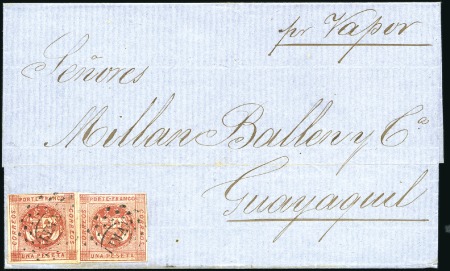 pr Vapor
Señores
Millan Ballen y Cª
Guayaquil
PORTE FRANCO
CORREOS
UNA PESETA
PORTE FRANCO
CORREOS
UNA PESETA